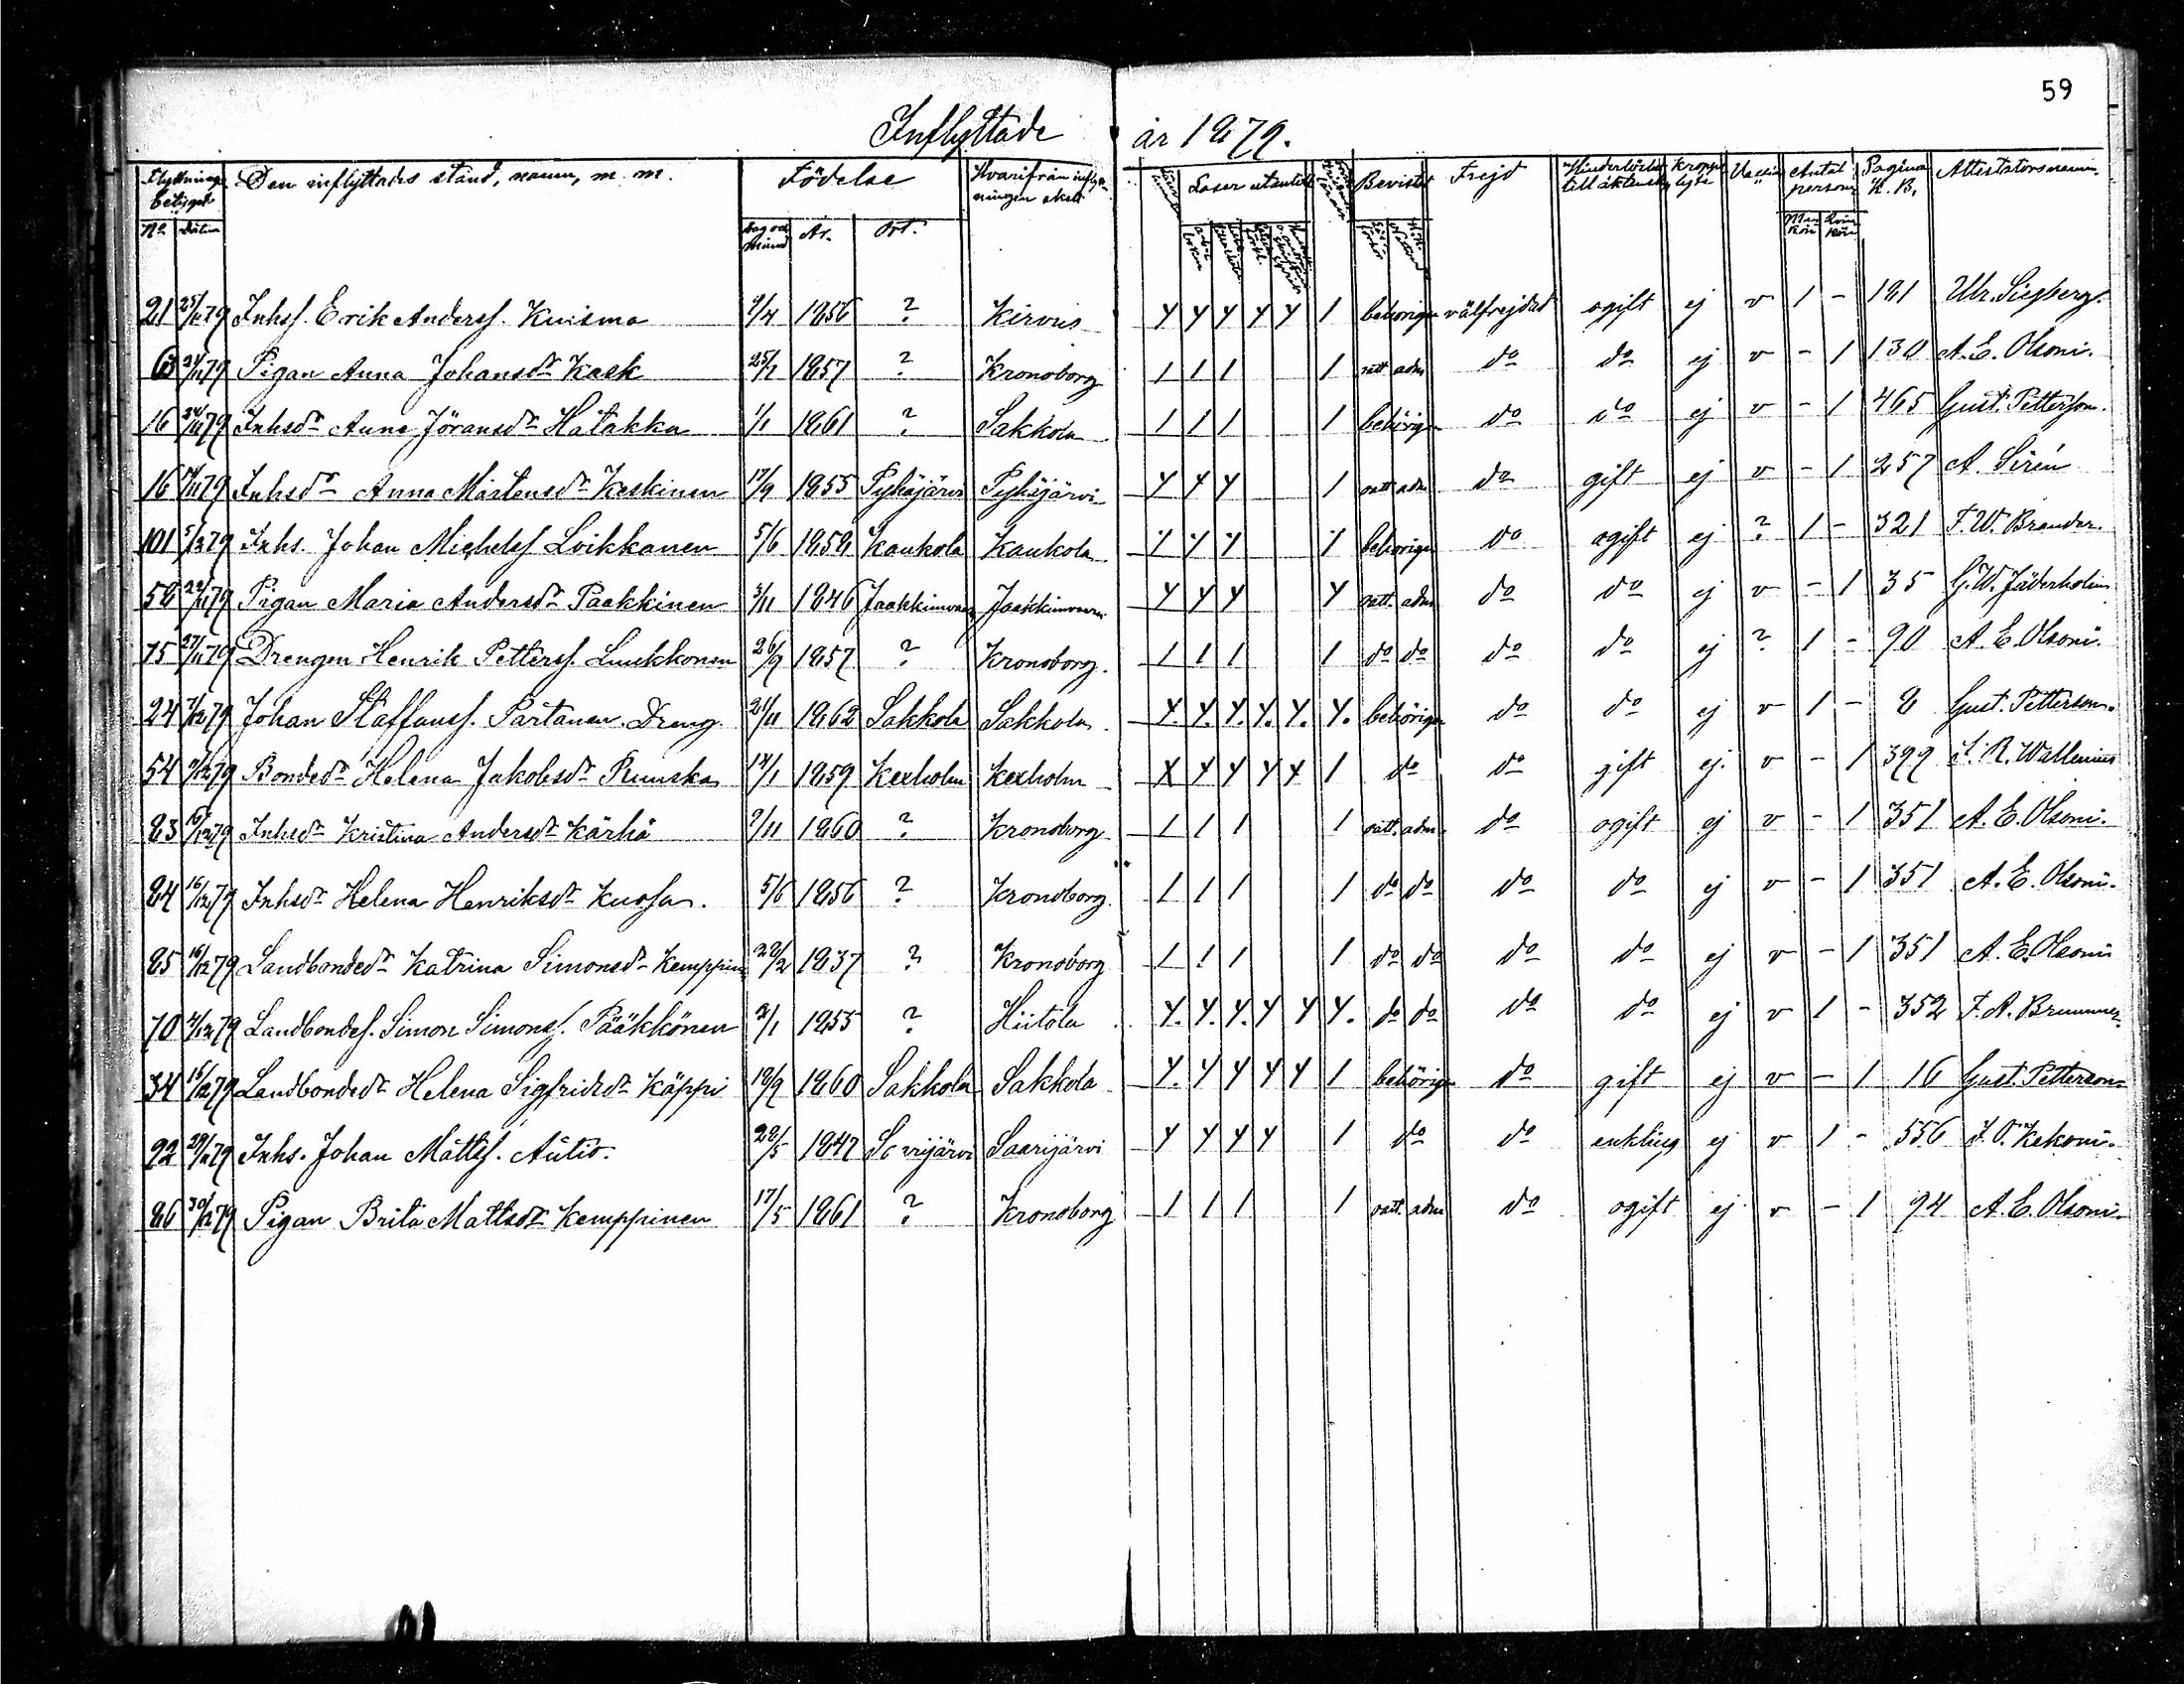 59
Inflyttade år 1879.
Flyttnings betyget Den inflyttades stånd, namn, m. m. Födelse Hvarifrån inflyttningen skett Läser utantill Bevistat Frejd Hinderlöshet till äktensk. Kroppslyte Vaccin Antal personer Pagina K. B. Attestators namn.
No Datum Dag och månad År. Ort. Mankön Qvinkön
21 25/11 79 Inhs. Erik Anderss. Kuisma 9/4 1856 ? Kirvus Y Y Y Y Y 1 behörigen välfrejdad ogift ej v 1 - 181 Ulr. Siegberg.
63 24/11 79 Pigan Anna Johansdr Kask 25/1 1857 ? Kronoborg 1 1 1 1 natt. adm. do do ej v - 1 130 A. E. Olsoni.
16 24/11 79 Inhsdr Anna Jöransdr Hatakka 1/1 1861 ? Sakkola 1 1 1 1 behörigen do do ej v - 1 465 Gust. Petterson.
16 79 Inhsdr Anna Mårtensdr Keskinen 17/9 1855 Pyhäjärvi Pyhäjärvi Y Y Y 1 natt. adm. do gift ej v - 1 257 A. Sirén
101 5/12 79 Inhs. Johan Michelss. Loikkanen 5/6 1858 Kaukola Kaukola Y Y Y Y behörigen do ogift ej ? 1 - 321 F. W. Brander.
58 22/11 79 Pigan Maria Andersdr Paakkinen 3/11 1846 Jaakkimvaara Jaakkimvaara Y Y Y Y natt. adm. do do ej v - 1 35 G. W. Jäderholm
75 27/11 79 Drengen Henrik Petterss. Luukkonen 26/9 1857 ? Kronoborg. 1 1 1 1 do do do do ej ? 1 - 90 A. E. Olsoni.
24 7/12 79 Johan Staffanss. Partanen Dreng. 21/11 1862 Sakkola Sakkola. Y. Y. Y. Y. Y. Y. behörigen do do ej v 1 - 8 Gust. Petterson.
54 9/12 79 Bondedr Helena Jakobsdr Ruuska 14/1 1859 Kexholm Kexholm X Y Y Y Y 1 do do gift ej. v - 1 399 R. Wallenius
83 16/12 79 Inhsdr Kristina Andersdr Kärhä 9/11 1860 ? Kronoborg 1 1 1 1 natt. adm. do ogift ej v - 1 351 A. E. Olsoni.
84 16/12 79 Inhsdr Helena Henriksdr Kuosa. 5/6 1856 ? Kronoborg. 1 1 1 1 do do do do ej v - 1 351 A. E. Olsoni.
85 16/12 79 Landbondedr Katrina Simonsdr Kemppinen 28/2 1837 ? Kronoborg 1 1 1 1 do do do do ej v - 1 351 A. E. Olsoni
70 2/12 79 Landbondes. Simon Simonss. Pääkkönen 2/1 1855 ? Hiitola Y. Y. Y. Y Y Y. do do do do ej v 1 - 352 F. A. Brummer.
34 15/12 79 Landbondedr Helena Sigfridsdr Käppi 18/9 1860 Sakkola Sakkola Y. Y Y Y Y 1 behörigen do gift ej v - 1 16 Gust. Petterson
92 29/11 79 Inhs. Johan Mattss. Autio. 28/5 1847 Saarijärvi Saarijärvi Y Y Y Y 1 do do enkling ej v 1 - 556 J. O. Kekoni.
86 30/12 79 Pigan Brita Mattsdr Kemppinen 17/5 1861 ? Kronoborg 1 1 1 1 natt. adm. do ogift ej v - 1 94 A. E. Olsoni.